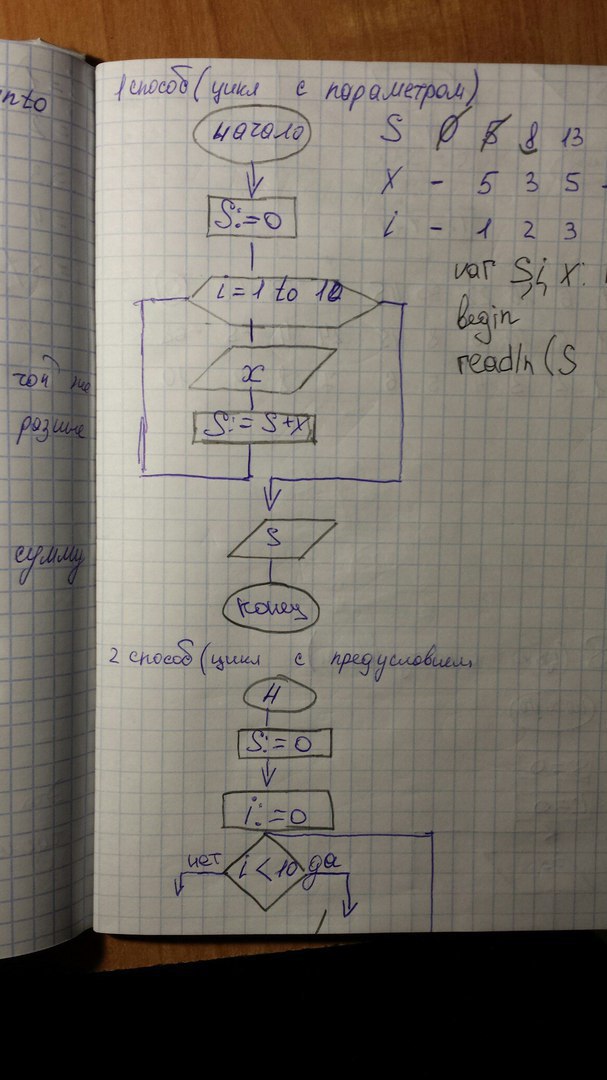 1 способ (цикл с параметром)
начало
S:=0
i=1 to 10
x
S:=S+x
S
конец
S 0 5 8 13
X - 5 3 5 -
i - 1 2 3
var S, i, x:
begin
readln (S
2 способ (цикл с предусловием
Н
S:=0
i:=0
нет i<10 да
nto
разные
сумму